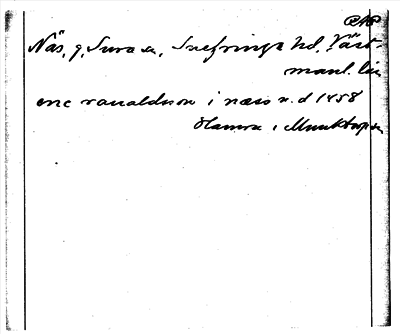 PN
Näs, g, Sura sn, Snefringe hd, Väst-
manl. län
enc ranaldsson i næss n. d 1458
Hamra i Munktorp sn